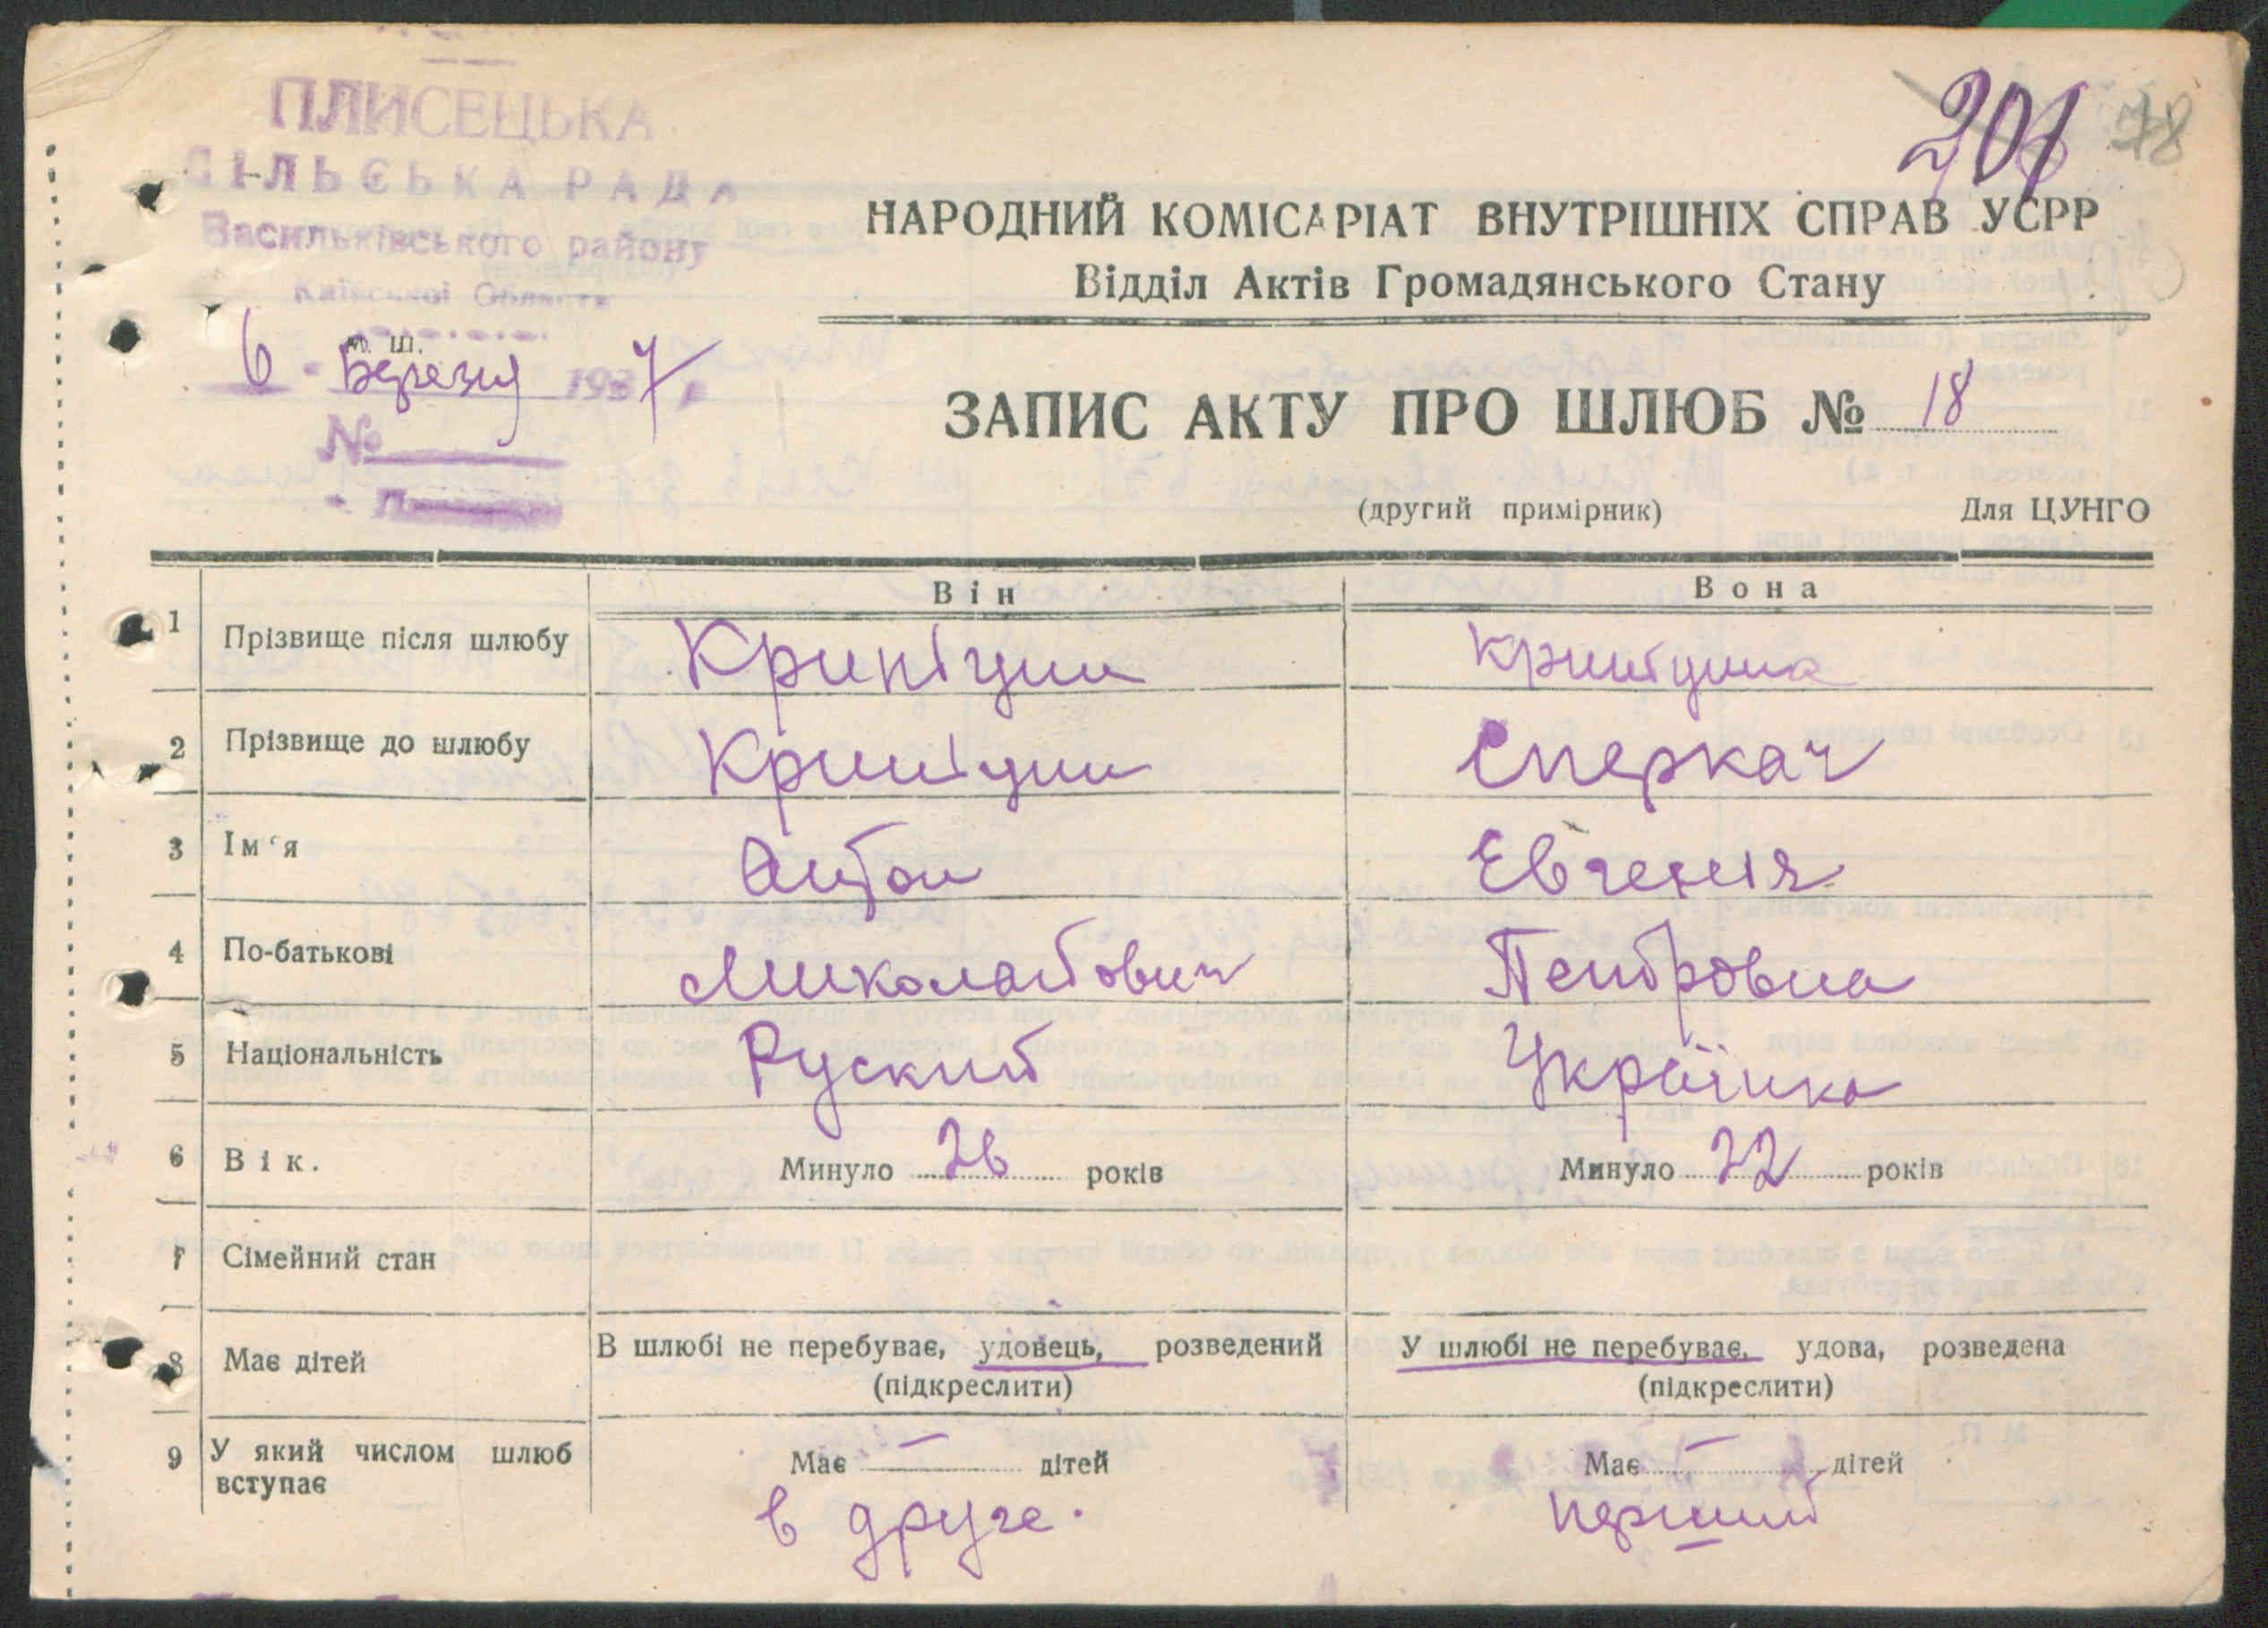 ПЛИСЕЦЬКА
СІЛЬСЬКА РАДА
Васильківського району
Київської Области
М. Ш.
6 Березня 1937 р
№
201 78
НАРОДНИЙ КОМІСАРІАТ ВНУТРІШНІХ СПРАВ УСРР
Відділ Актів Громадянського Стану
ЗАПИС АКТУ ПРО ШЛЮБ № 18
(другий примірник) Для ЦУНГО
Він Вона
1 Прізвище після шлюбу Криніцин Криніцина
2 Прізвище до шлюбу Криніцин Сперкач
3 Ім'я Антон Евгенія
4 По-батькові Миколайович Пентровна
5 Національність Руский Українка
6 Вік. Минуло 26 років Минуло 22 років
7 Сімейний стан
8 Має дітей В шлюбі не перебуває, удовець, розведений У шлюбі не перебуває, удова, розведена
(підкреслити) (підкреслити)
9 У який числом шлюб вступає Має — дітей Має — дітей
в друге. перший